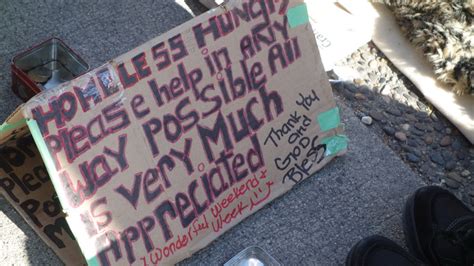 HOMELESS HUNGRY
Please help in ANY
WAY POSSIBLE All
is VERY Much
Appreciated
Thank You
and
GOD
Bless
Wonderful Weekend +
Week